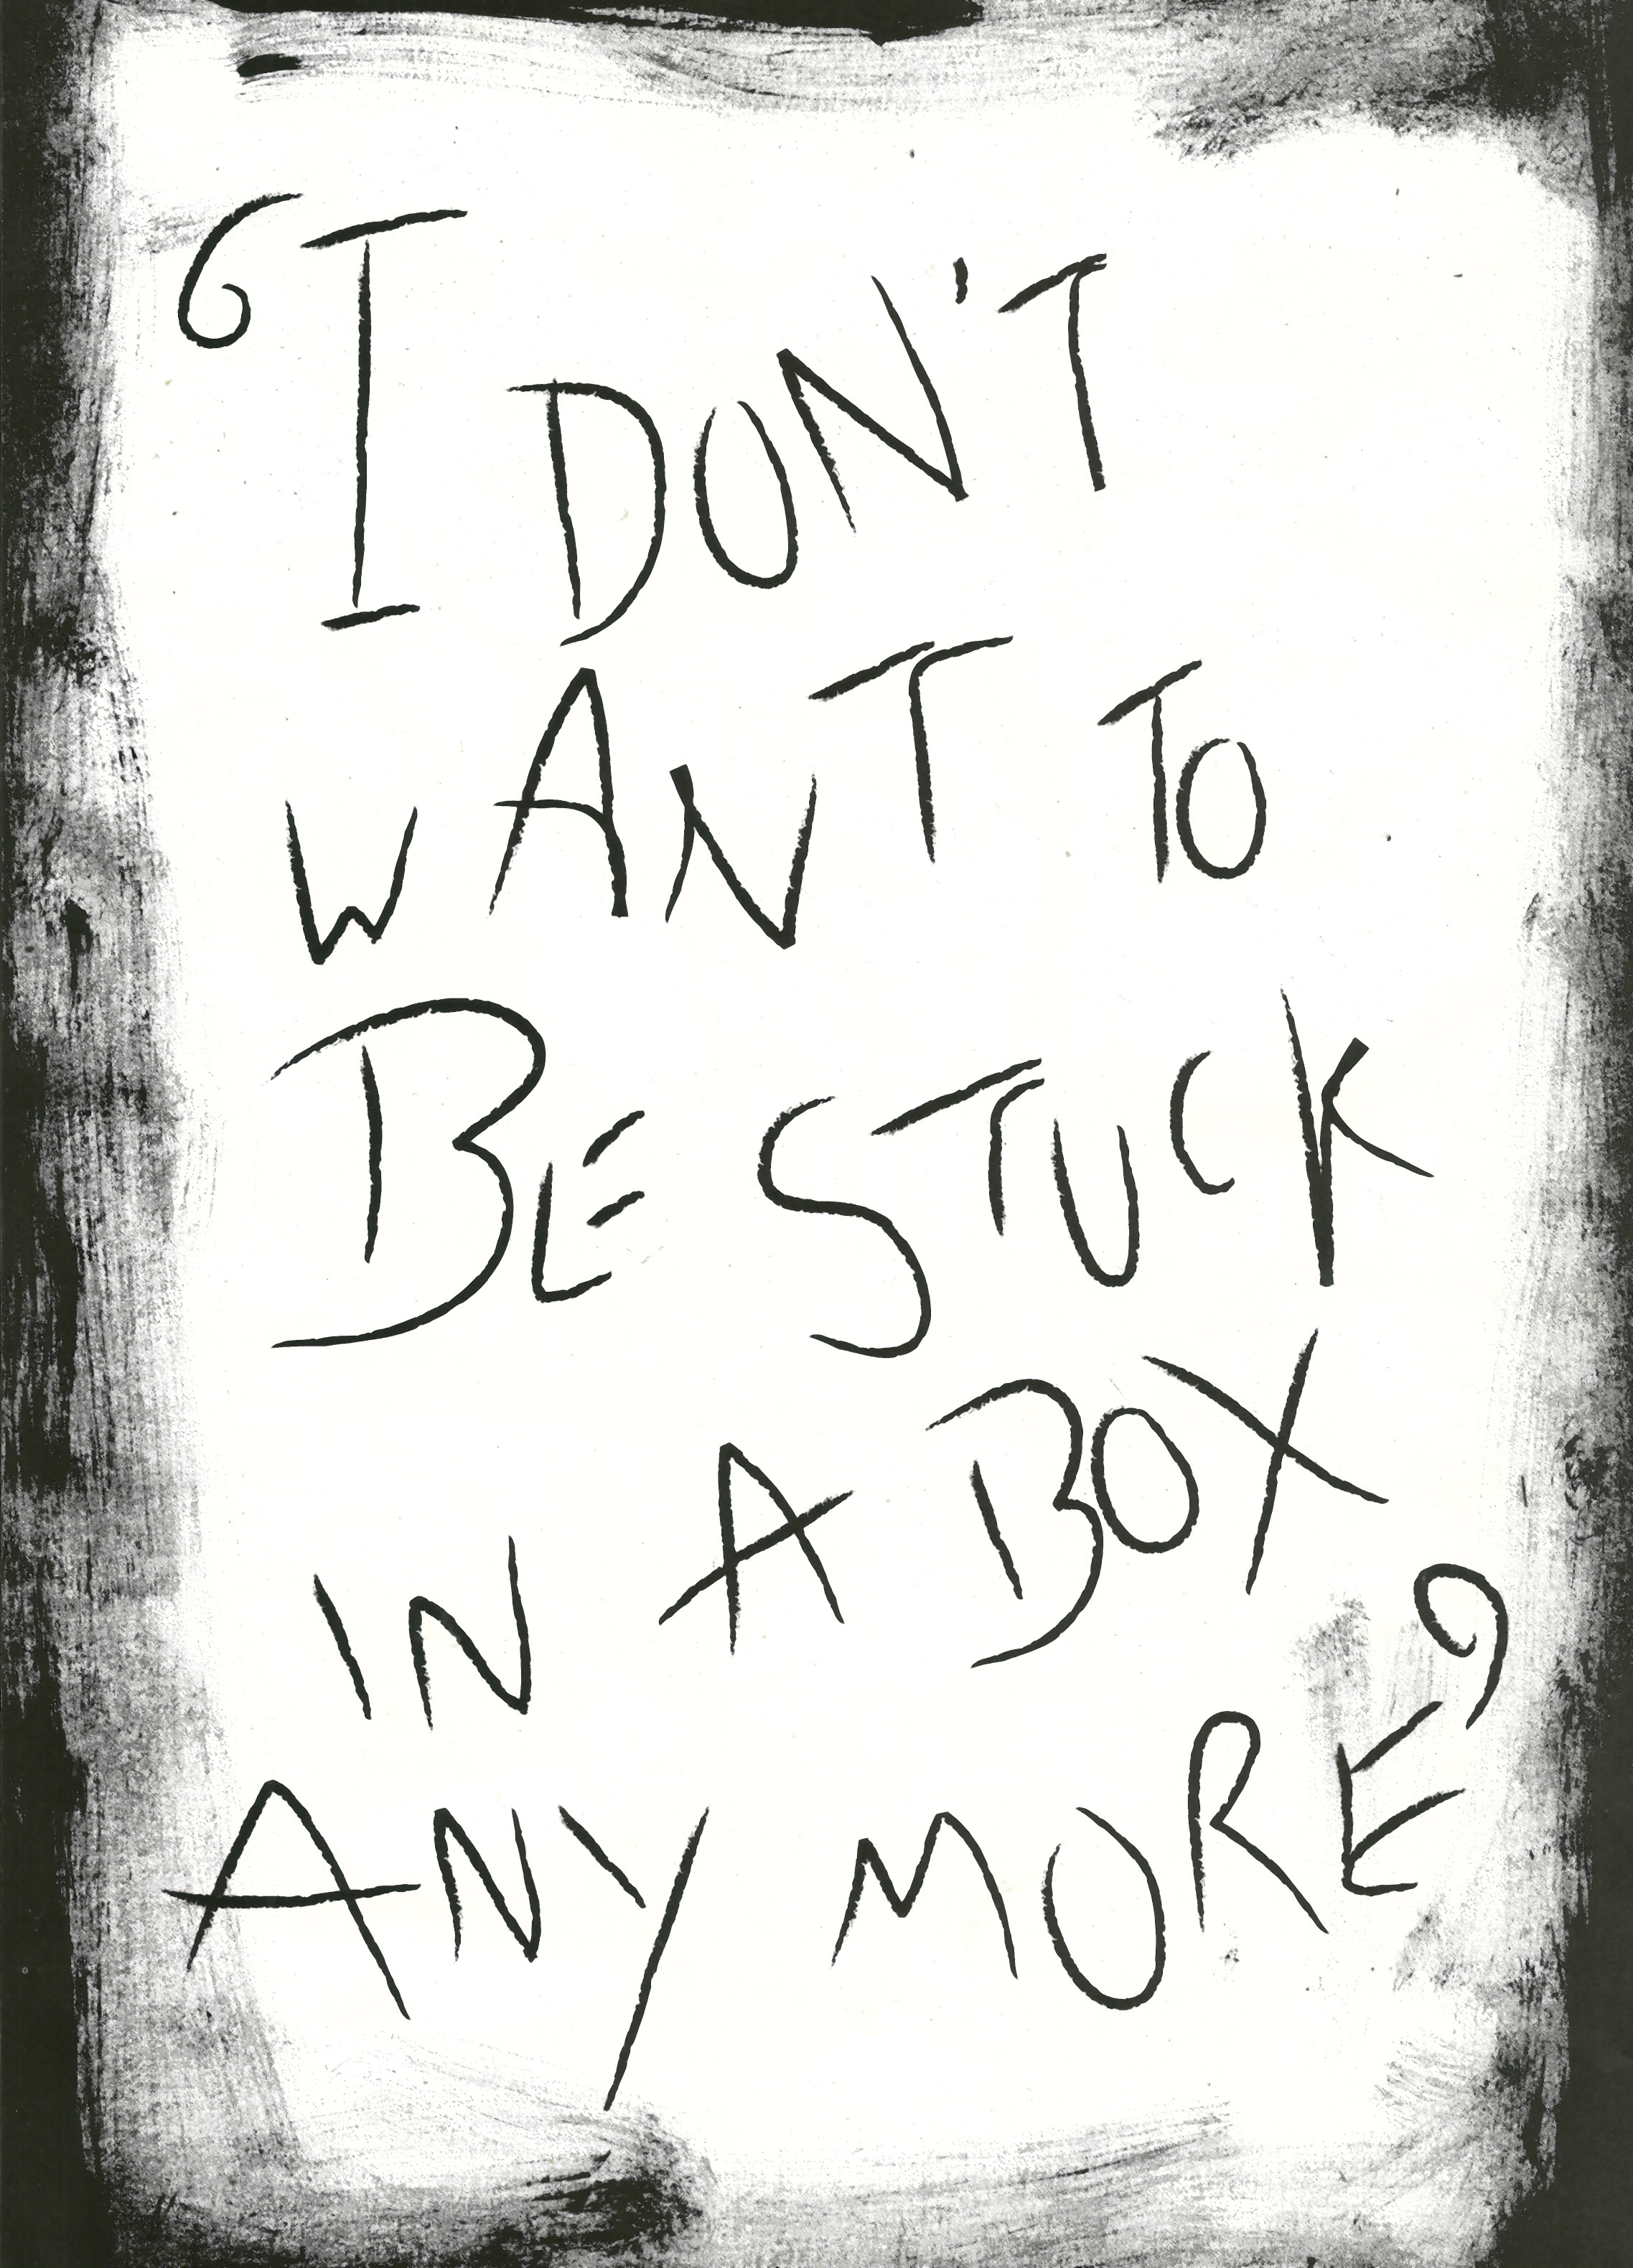 ‘I DON'T
WANT TO
BE STUCK
IN A BOX
ANY MORE’